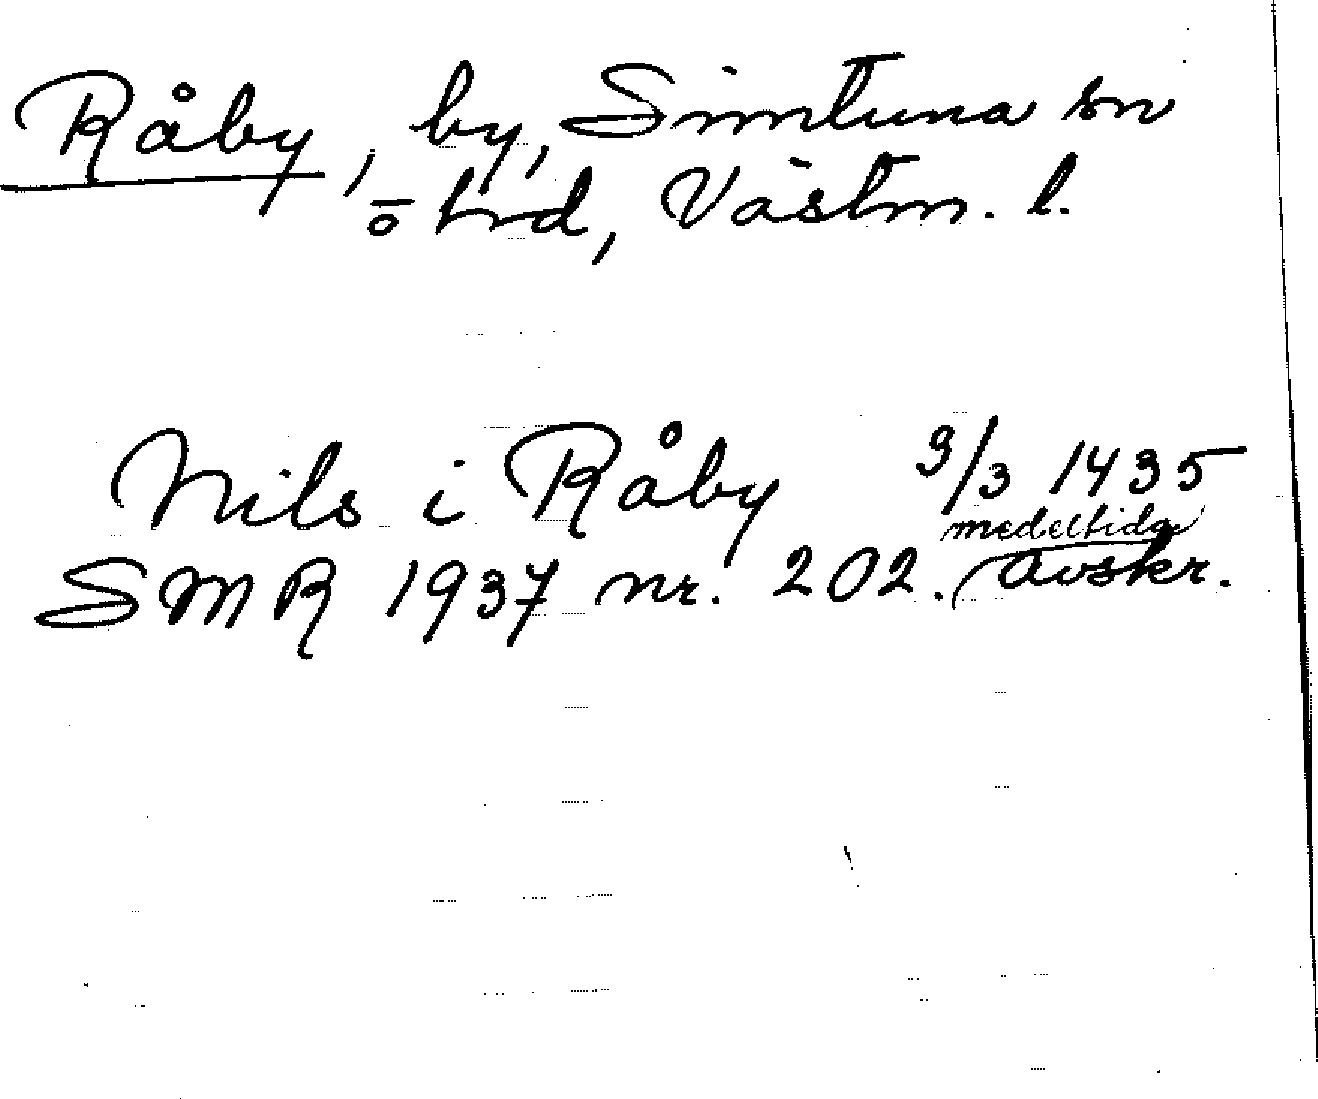 Råby, by, Simtuna sn
ö hrd, Västm. l.
Nils i Råby 9/3 1435
medeltida
SMR 1937 nr. 202. avskr.